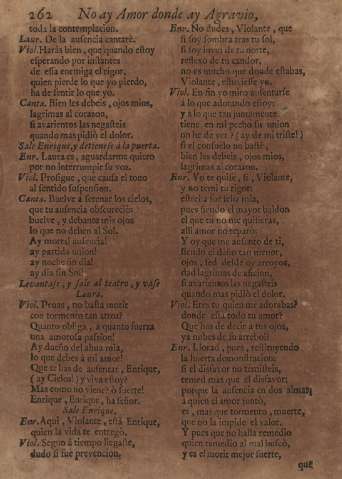 262 No ay Amor donde ay Agravio,
toda la contemplacion.
Laur. De la ausencia cantarè.
Viol. Haràs bien, que quando estoy
esperando por instantes
de essa enemiga el rigor,
quien pierde lo que yo pierdo,
ha de sentir lo que yo.
Canta. Bien les debeis, ojos mios,
lagrimas al corazon,
si avarientos las negasteis
quando mas pidiò el dolor.
Sale Enrique, y detienese à la puerta.
Enr. Laura es, aguardarme quiero
por no interrumpir su voz.
Viol. Prosigue, que causa el tono
al sentido suspension.
Canta. Buelve à serenar los cielos,
que tu ausencia obscureciò:
buelve, y debante mis ojos
lo que no deben al Sol.
Ay mortal ausencia!
ay partida union!
ay noche sin dia!
ay dia sin Sol!
Levantase, y sale al teatro, y vase
Laura.
Viol. Penas, no basta morir
con tormento tan atroz?
Quanto obliga, à quanto fuerza
una amorosa passion!
Ay dueño del alma mia,
lo que debes à mi amor!
Que te has de ausentar, Enrique,
(ay Cielos!) y viva estoy?
Mas como no viene? ò fuerte!
Enrique, Enrique, ha señor.
Sale Enrique.
Enr. Aqui, Violante, està Enrique,
quien la vida te entregò.
Viol. Segun à tiempo llegaste,
dudo si fue prevencion.
Enr. No dudes, Violante, que
si soy sombra tras tu sol,
si soy iman de tu norte,
reflexo de tu candor,
no es mucho que donde estabas,
Violante, estuviesse yo.
Viol. En fin yo miro ausentarse
à lo que adorando estoy:
y à lo que tan justamente
tiene en mi pecho su union
no he de ver? (ay de mi triste!)
si el consuelo no bastò,
bien les debeis, ojos mios,
lagrimas al corazon.
Enr. Yo te quise, si, Violante,
y no temì tu rigor:
esta era fortuna mia,
pues siendo el mayor baldon
el que tu no me quisieras,
alli amor no reparò:
Y oy que me ausento de ti,
siendo el daño tan menor,
ojos, sed desde oy arroyos,
dad lagrimas de aficion,
si avarientos las negasteis
quando mas pidiò el dolor.
Viol. Eres tu quien me adorabas?
donde està todo tu amor?
Que has de decir à tus ojos,
ya nubes de su arrebol?
Enr. Llorad, pues, restituyendo
la hurta demonstracion:
si el disfavor no temisteis,
temed mas que el disfavor:
porque la ausencia en dos almas,
à quien el amor juntò,
es, mas que tormento, muerte,
que no la impide el valor.
Y pues que no halla remedio
quien remedio al mal buscò,
y es el morir mejor suerte,
que